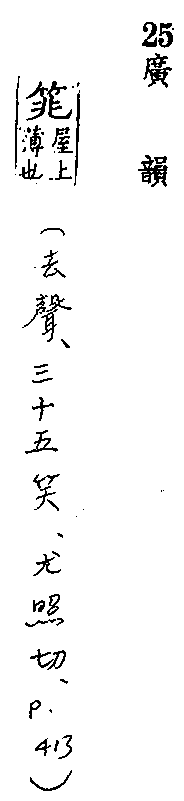 25 廣韻
筄 屋上
薄也
(去聲、三十五笑、尤照切、P. 413)